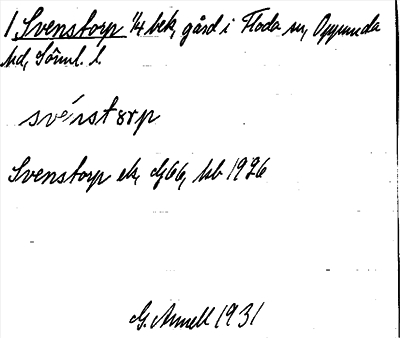 1 Svenstorp 1/4 bek, gård i Floda sn, Oppunda
hd, Söml. l.
svénstorp
Svenstorp ek, dj66, kb 1926
G. Annell 1931